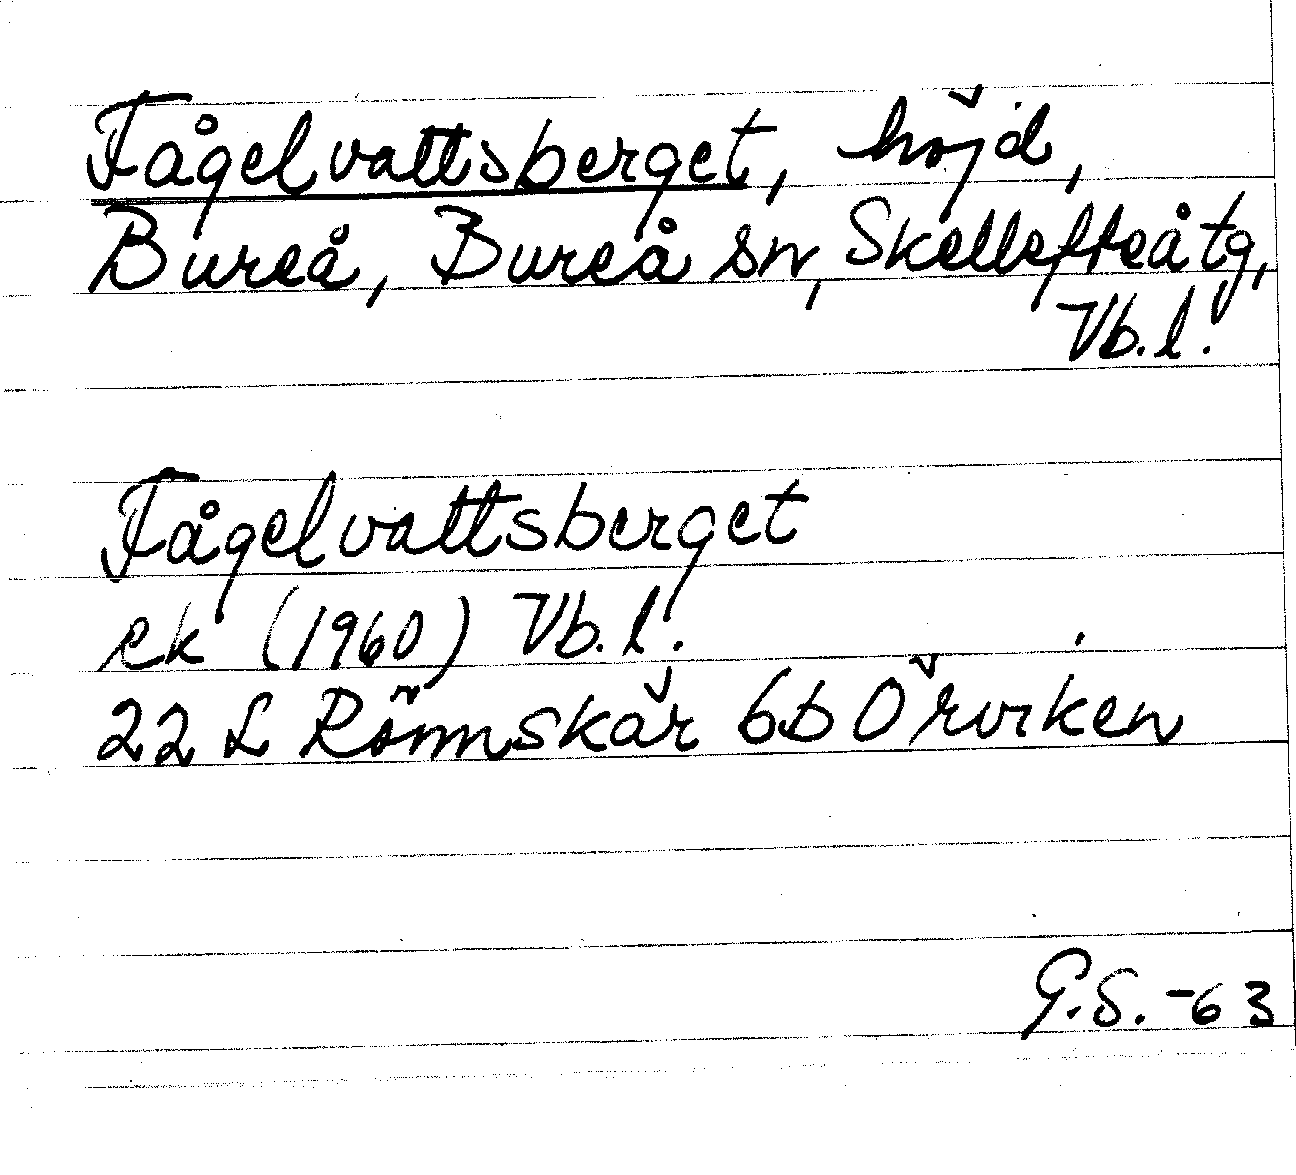 Fågelvattsberget, höjd,
Bureå, Bureå sn, Skellefteå tg,
Vb.l.
Fågelvattsberget
ek (1960) Vb.l.
22 L Rönnskär 6b Örviken
G.S. -63